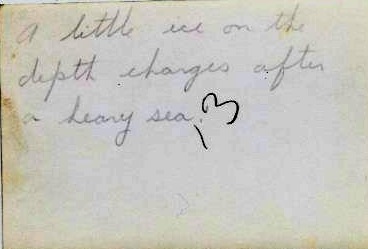 A little ice on the
depth charges after
a heavy sea.
13